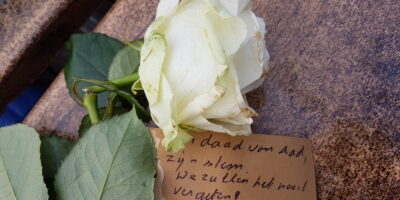 daad van Aad,
zijn stem
We zullen het nooit
vergeten!